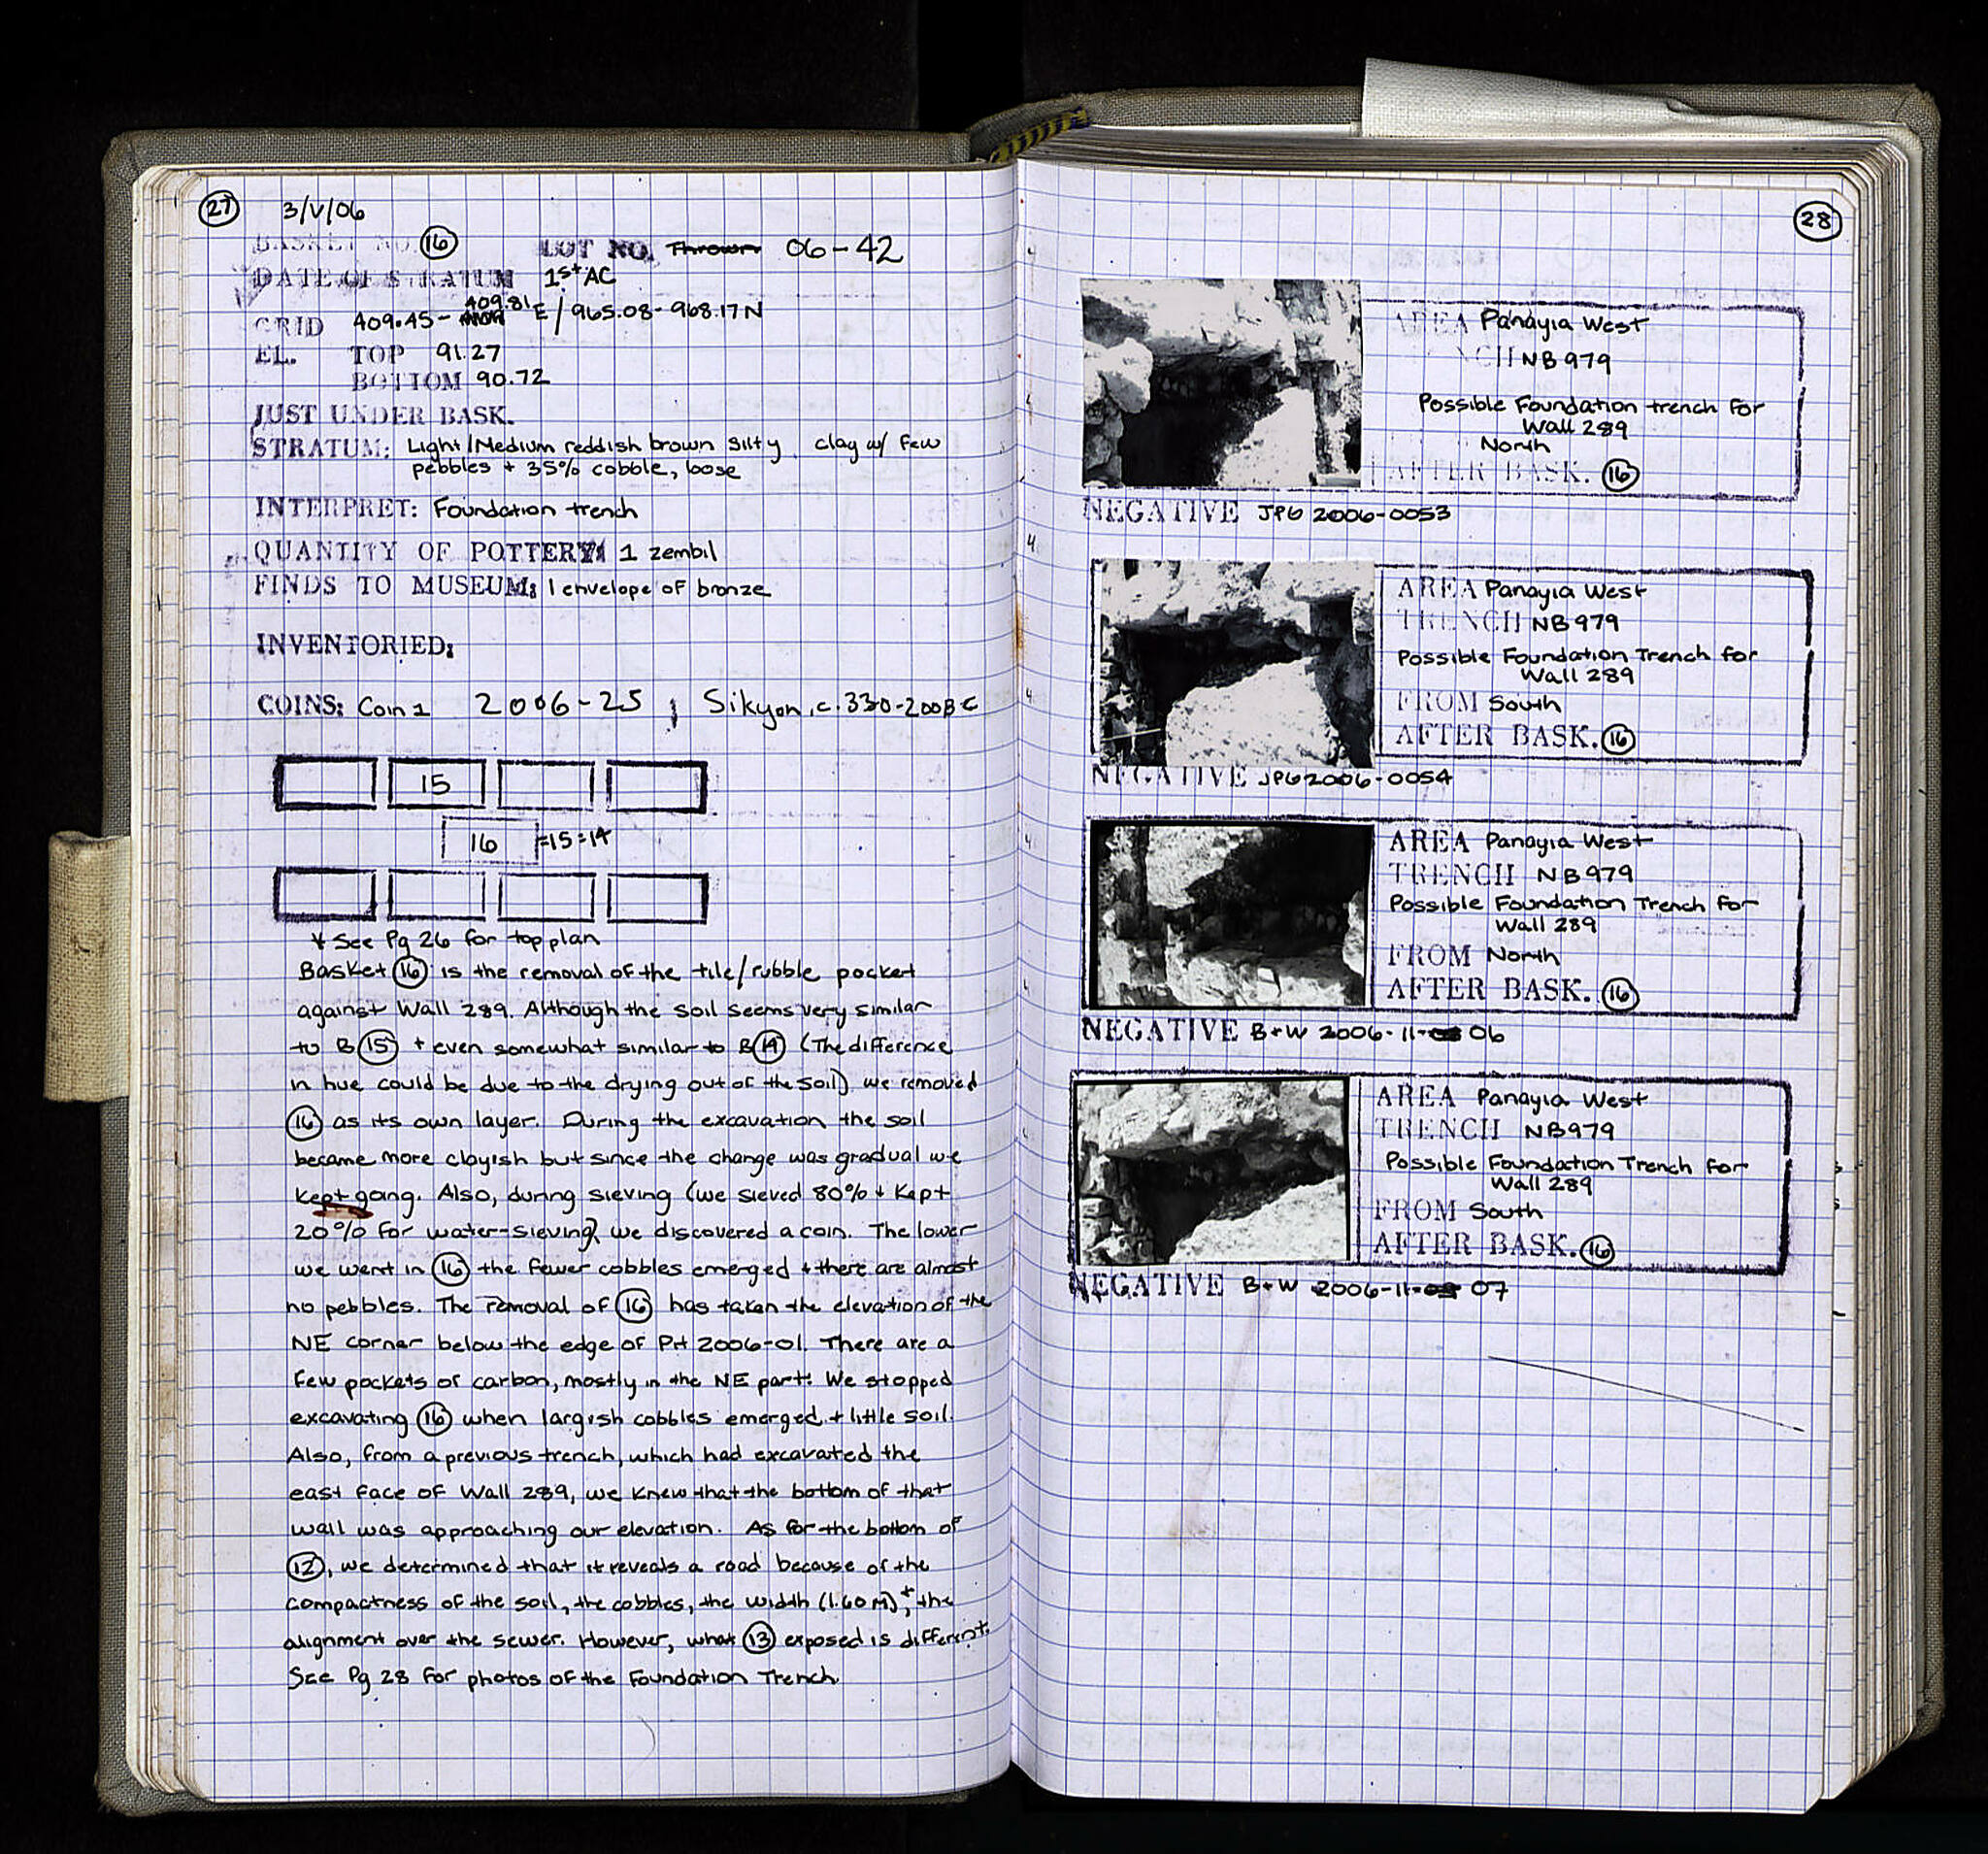 27
3/V/06
BASKET NO. 16 LOT NO. Thrown 06-42
DATE OF STRATUM 1st AC
409.81
GRID 409.45- E/965.08-968.17N
EL. TOP 91.27
BOTTOM 90.72
JUST UNDER BASK.
STRATUM: Light/Medium reddish brown silty clay w/ few
pebbles + 35% cobble, loose
INTERPRET: Foundation trench
QUANTITY OF POTTERY: 1 zembil
FINDS TO MUSEUM: 1 envelope of bronze
INVENTORIED:
COINS: Coin 1 2006-25; Sikyon, c. 330-200BC
15
16 =15=14
* See Pg 26 for top plan
Basket 16 is the removal of the tile/rubble pocket
against Wall 289. Although the soil seems very similar
to B 15 + even somewhat similar to B 14 (The difference
in hue could be due to the drying out of the soil) we removed
16 as its own layer. During the excavation the soil
became more clayish but since the change was gradual we
kept going. Also, during sieving (we sieved 80% + kept
20% for water-sieving), we discovered a coin. The lower
we went in 16 the fewer cobbles emerged + there are almost
no pebbles. The removal of 16 has taken the elevation of the
NE corner below the edge of Pit 2006-01. There are a
few pockets of carbon, mostly in the NE part. We stopped
excavating 16 when largish cobbles emerged + little soil.
Also, from a previous trench, which had excavated the
east face of Wall 289, we knew that the bottom of that
wall was approaching our elevation. As for the bottom of
12, we determined that it reveals a road because of the
compactness of the soil, the cobbles, the width (1.60 M), + the
alignment over the sewer. However, what 13 exposed is different.
See Pg 28 for photos of the Foundation Trench
28
AREA Panayia West
TRENCH NB979
Possible Foundation trench for
Wall 289
North
AFTER BASK. 16
NEGATIVE JPG 2006-0053
AREA Panayia West
TRENCH NB979
Possible Foundation Trench for
Wall 289
FROM South
AFTER BASK. 16
NEGATIVE JPG 2006-0054
AREA Panayia West
TRENCH NB979
Possible Foundation Trench for
Wall 289
FROM North
AFTER BASK. 16
NEGATIVE B+W 2006-11-06
AREA Panayia West
TRENCH NB979
Possible Foundation Trench for
Wall 289
FROM South
AFTER BASK. 16
NEGATIVE B+W 2006-11-07